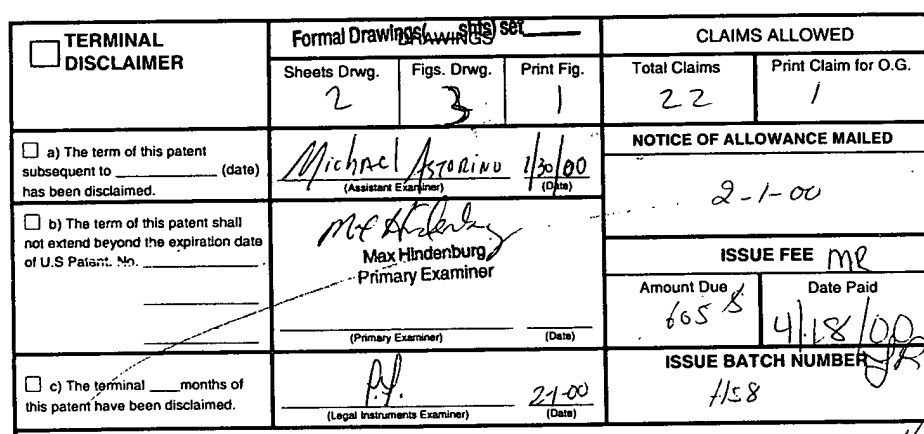 TERMINAL
DISCLAIMER
a) The term of this patent
subsequent to ____________ (date)
has been disclaimed.
b) The term of this patent shall
not extend beyond the expiration date
of U.S Patent. No. ____________
c) The terminal ____months of
this patent have been disclaimed.
Formal Drawings(____shts) set____
DRAWINGS
Sheets Drwg. Figs. Drwg. Print Fig.
2 3 1
Michael Astorino 1/30/00
(Assistant Examiner) (Date)
Max Hindenburg
Max Hindenburg
Primary Examiner
(Primary Examiner) (Date)
2-1-00
(Legal Instruments Examiner) (Date)
CLAIMS ALLOWED
Total Claims Print Claim for O.G.
22 1
NOTICE OF ALLOWANCE MAILED
2-1-00
ISSUE FEE
Amount Due Date Paid
605 4/18/00
ISSUE BATCH NUMBER
H58